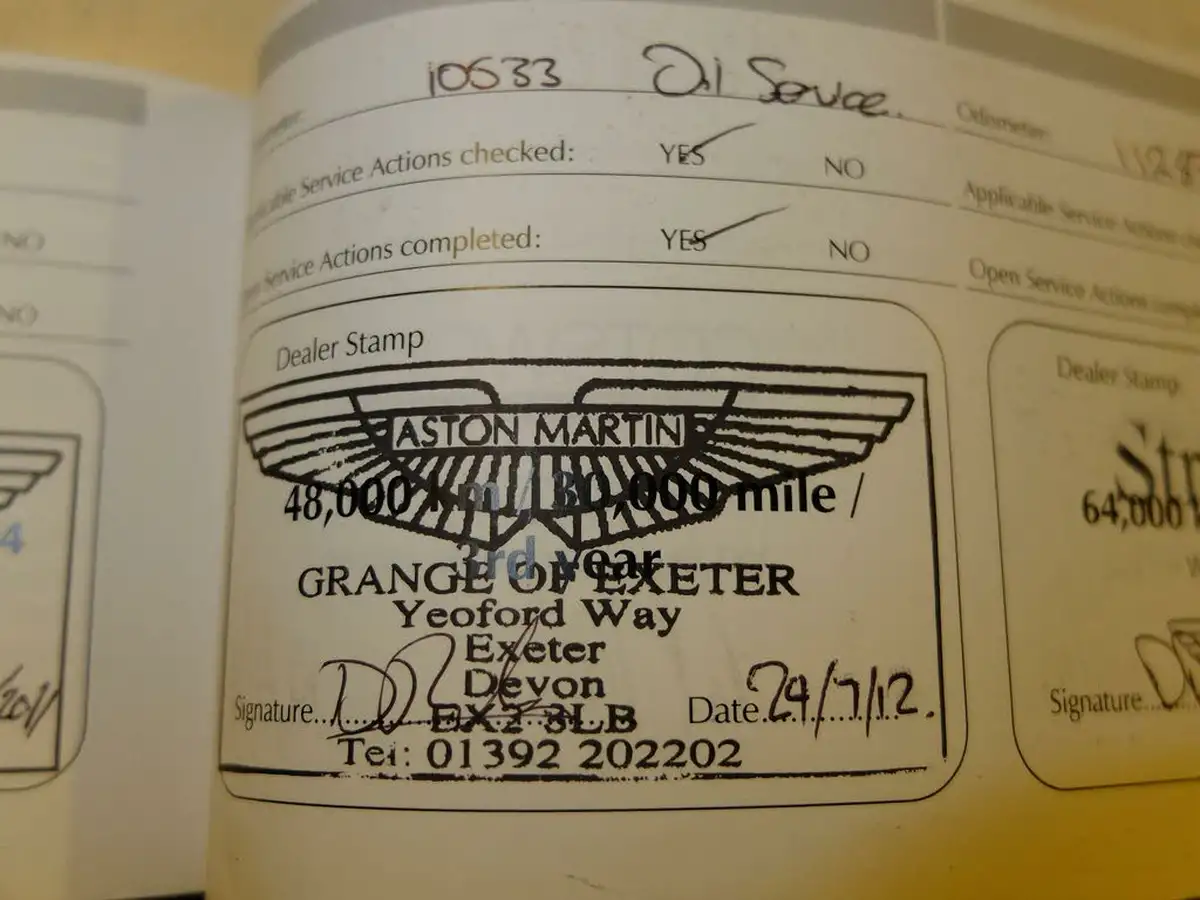 10533 Oil Service.
Service Actions checked: YES NO
Service Actions completed: YES NO
Dealer Stamp
ASTON MARTIN
48,000 km / 30,000 mile /
3rd year
GRANGE OF EXETER
Yeoford Way
Exeter
Devon
EX2 3LB
Signature Date 24/7/12.
Tel: 01392 202202
NO
NO
4
Odometer:
Applicable Service Actions
Open Service Actions
Dealer Stamp
64,000
Signature